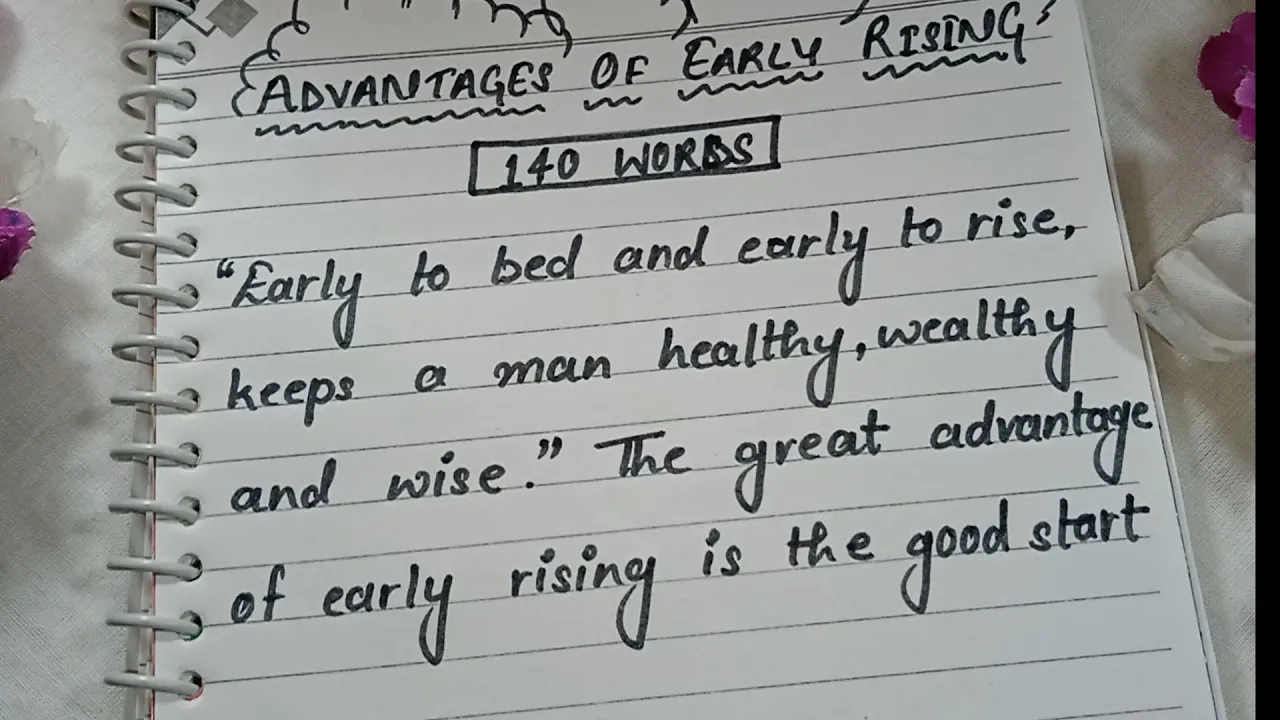 ADVANTAGES OF EARLY RISING
140 WORDS
"Early to bed and early to rise,
keeps a man healthy, wealthy
and wise." The great advantage
of early rising is the good start